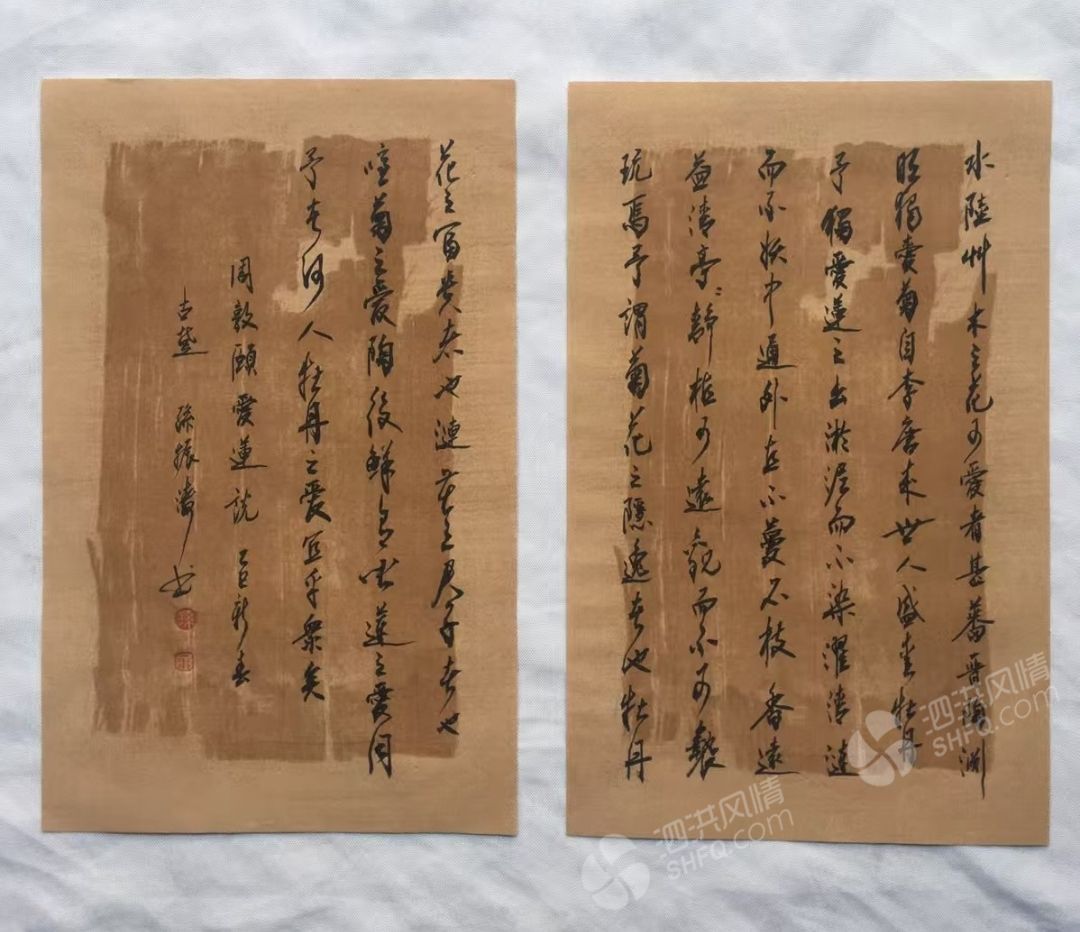 水陸艸木之花可愛者甚蕃晉陶淵
明獨愛菊自李唐来世人盛愛牡丹
予獨愛蓮之出淤泥而不染濯清漣
而不妖中通外直不蔓不枝香遠
益清亭〻静植可遠觀而不可褻
玩焉予謂菊花之隱逸者也牡丹
花之富貴者也漣花之君子者也
噫菊之愛陶後鮮有聞蓮之愛同
予者何人牡丹之愛宜乎衆矣
周敦頤愛蓮説 乙巳新春
古 孫振濤書
泗洪风情
SHFQ.com
泗洪风情
SHFQ.com